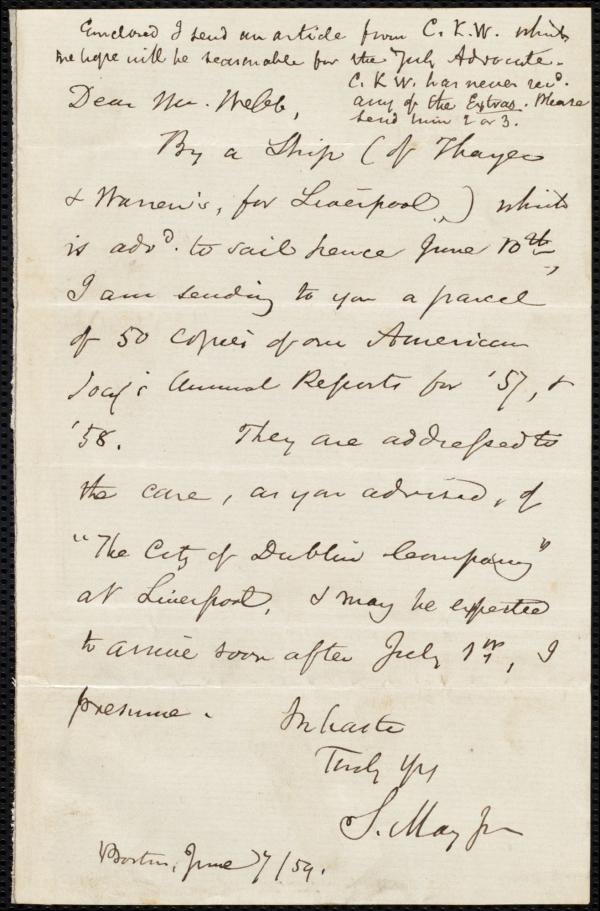 Enclosed I send an article from C. K. W. which
we hope will be seasonable for the July Advocate.
C. K. W. has never recd.
any of the Extras. Please
send him 2 or 3.
Dear Mr. Webb,
By a Ship (of Thayer
& Warren's, for Liverpool,) which
is advd. to sail hence June 10th,
I am sending to you a parcel
of 50 copies of our American
Socy's Annual Reports for '57, &
'58. They are addressed to
the care, as you advised, of
"The City of Dublin Company"
at Liverpool, & may be expected
to arrive soon after July 1st, I
presume. In haste
Truly Yrs
S. May Jr
Boston, June 7/59.